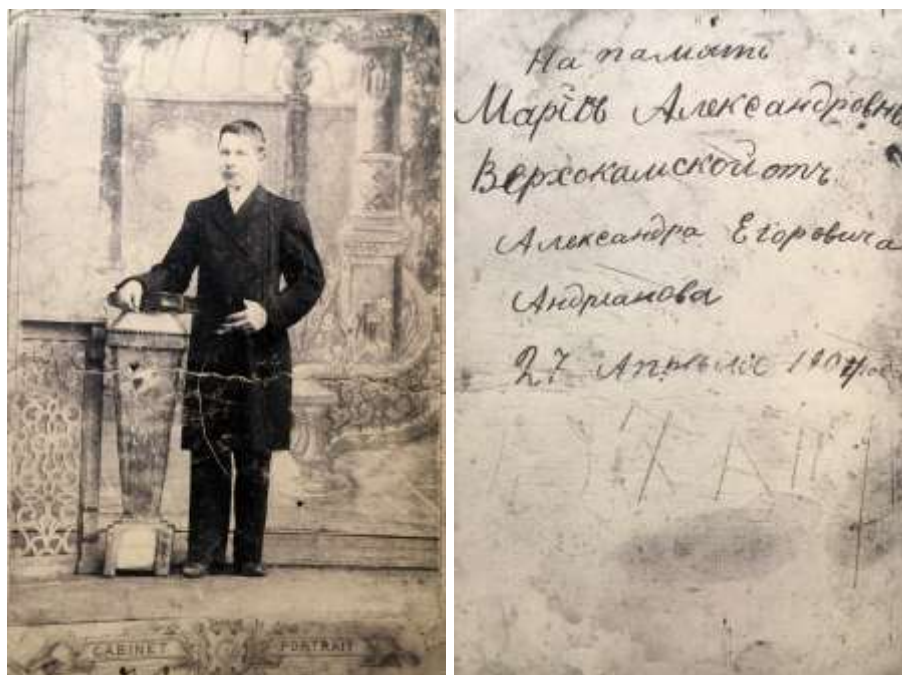 CABINET PORTRAIT
На память
Маріѣ Александровнѣ
Верхокамской отъ
Александра Егоровича
Андрианова
27 Апрѣля